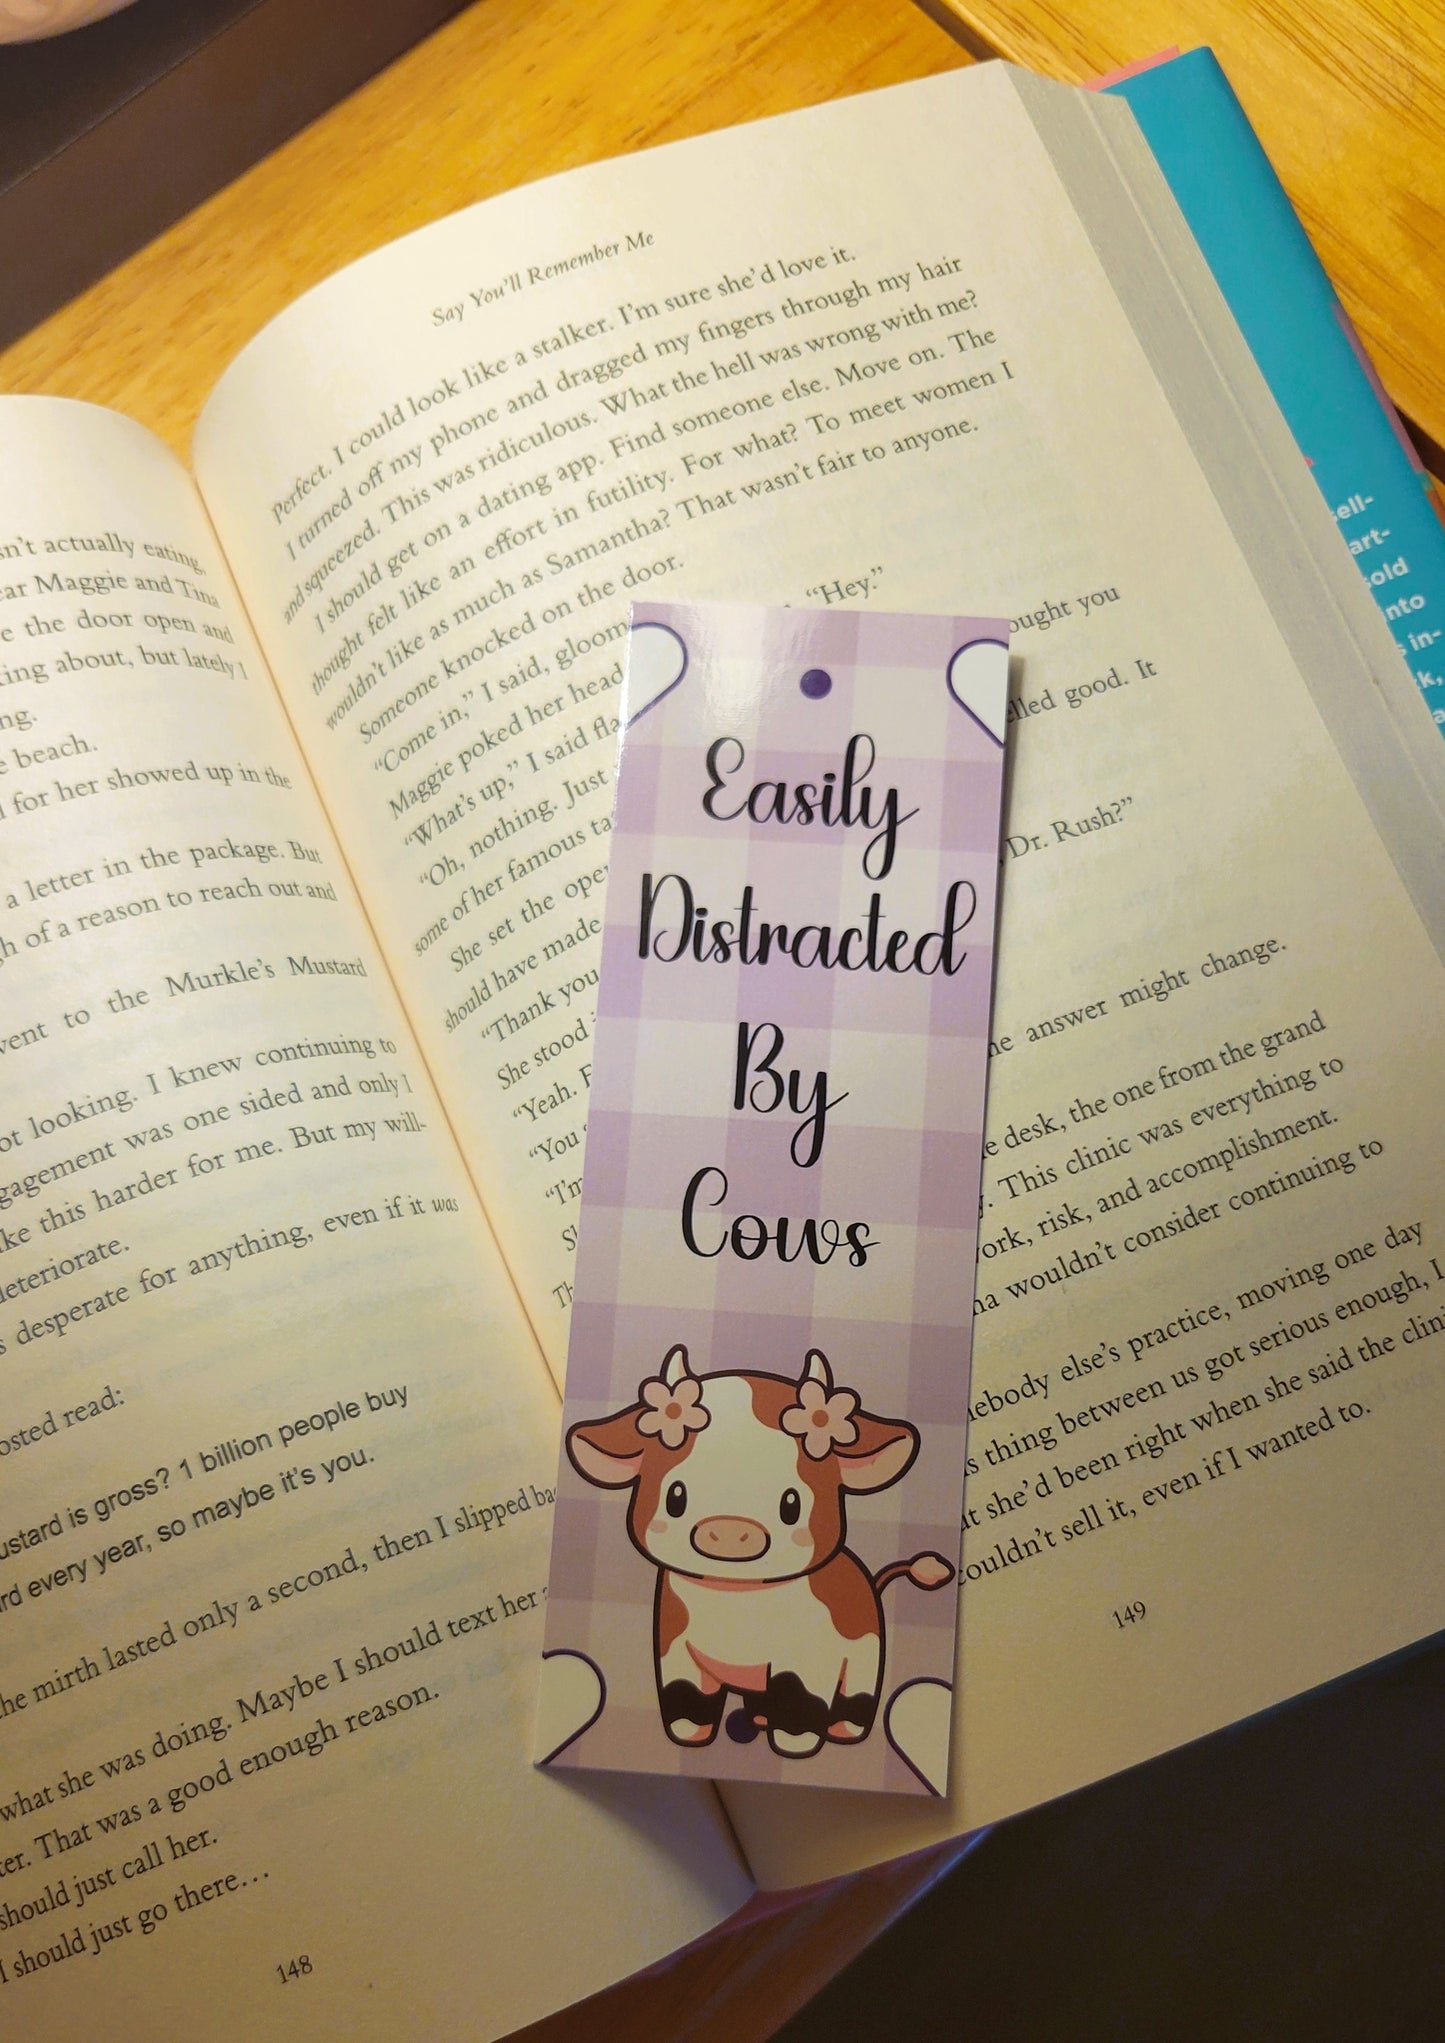 sn't actually eating,
ear Maggie and Tina
e the door open and
king about, but lately I
ng.
e beach.
l for her showed up in the
a letter in the package. But
h of a reason to reach out and
vent to the Murkle's Mustard
ot looking. I knew continuing to
gagement was one sided and only I
ke this harder for me. But my will-
deteriorate.
s desperate for anything, even if it was
osted read:
ustard is gross? 1 billion people buy
rd every year, so maybe it's you.
he mirth lasted only a second, then I slipped bac
what she was doing. Maybe I should text her a
ter. That was a good enough reason.
should just call her.
I should just go there…
148
Say You'll Remember Me
Perfect. I could look like a stalker. I'm sure she'd love it.
I turned off my phone and dragged my fingers through my hair
and squeezed. This was ridiculous. What the hell was wrong with me?
I should get on a dating app. Find someone else. Move on. The
thought felt like an effort in futility. For what? To meet women I
wouldn't like as much as Samantha? That wasn't fair to anyone.
Someone knocked on the door.
"Come in," I said, gloom
Maggie poked her head "Hey."
"What's up," I said fla ought you
"Oh, nothing. Just
some of her famous ta elled good. It
She set the ope
should have made
"Thank you , Dr. Rush?"
She stood i
"Yeah. F
"You
"I'm he answer might change.
S
Th e desk, the one from the grand
y. This clinic was everything to
work, risk, and accomplishment.
na wouldn't consider continuing to
nebody else's practice, moving one day
s thing between us got serious enough, I
at she'd been right when she said the clini
couldn't sell it, even if I wanted to.
149
Easily
Distracted
By
Cows
sell-
art-
sold
into
s in-
k,
a